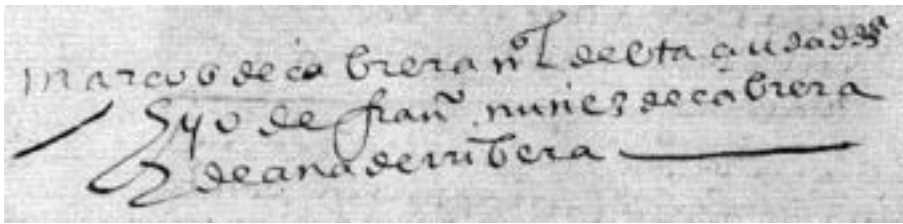 marcos de cabrera nl de esta ciudad
hyo de fran nuñez de cabrera
de ana de rribera